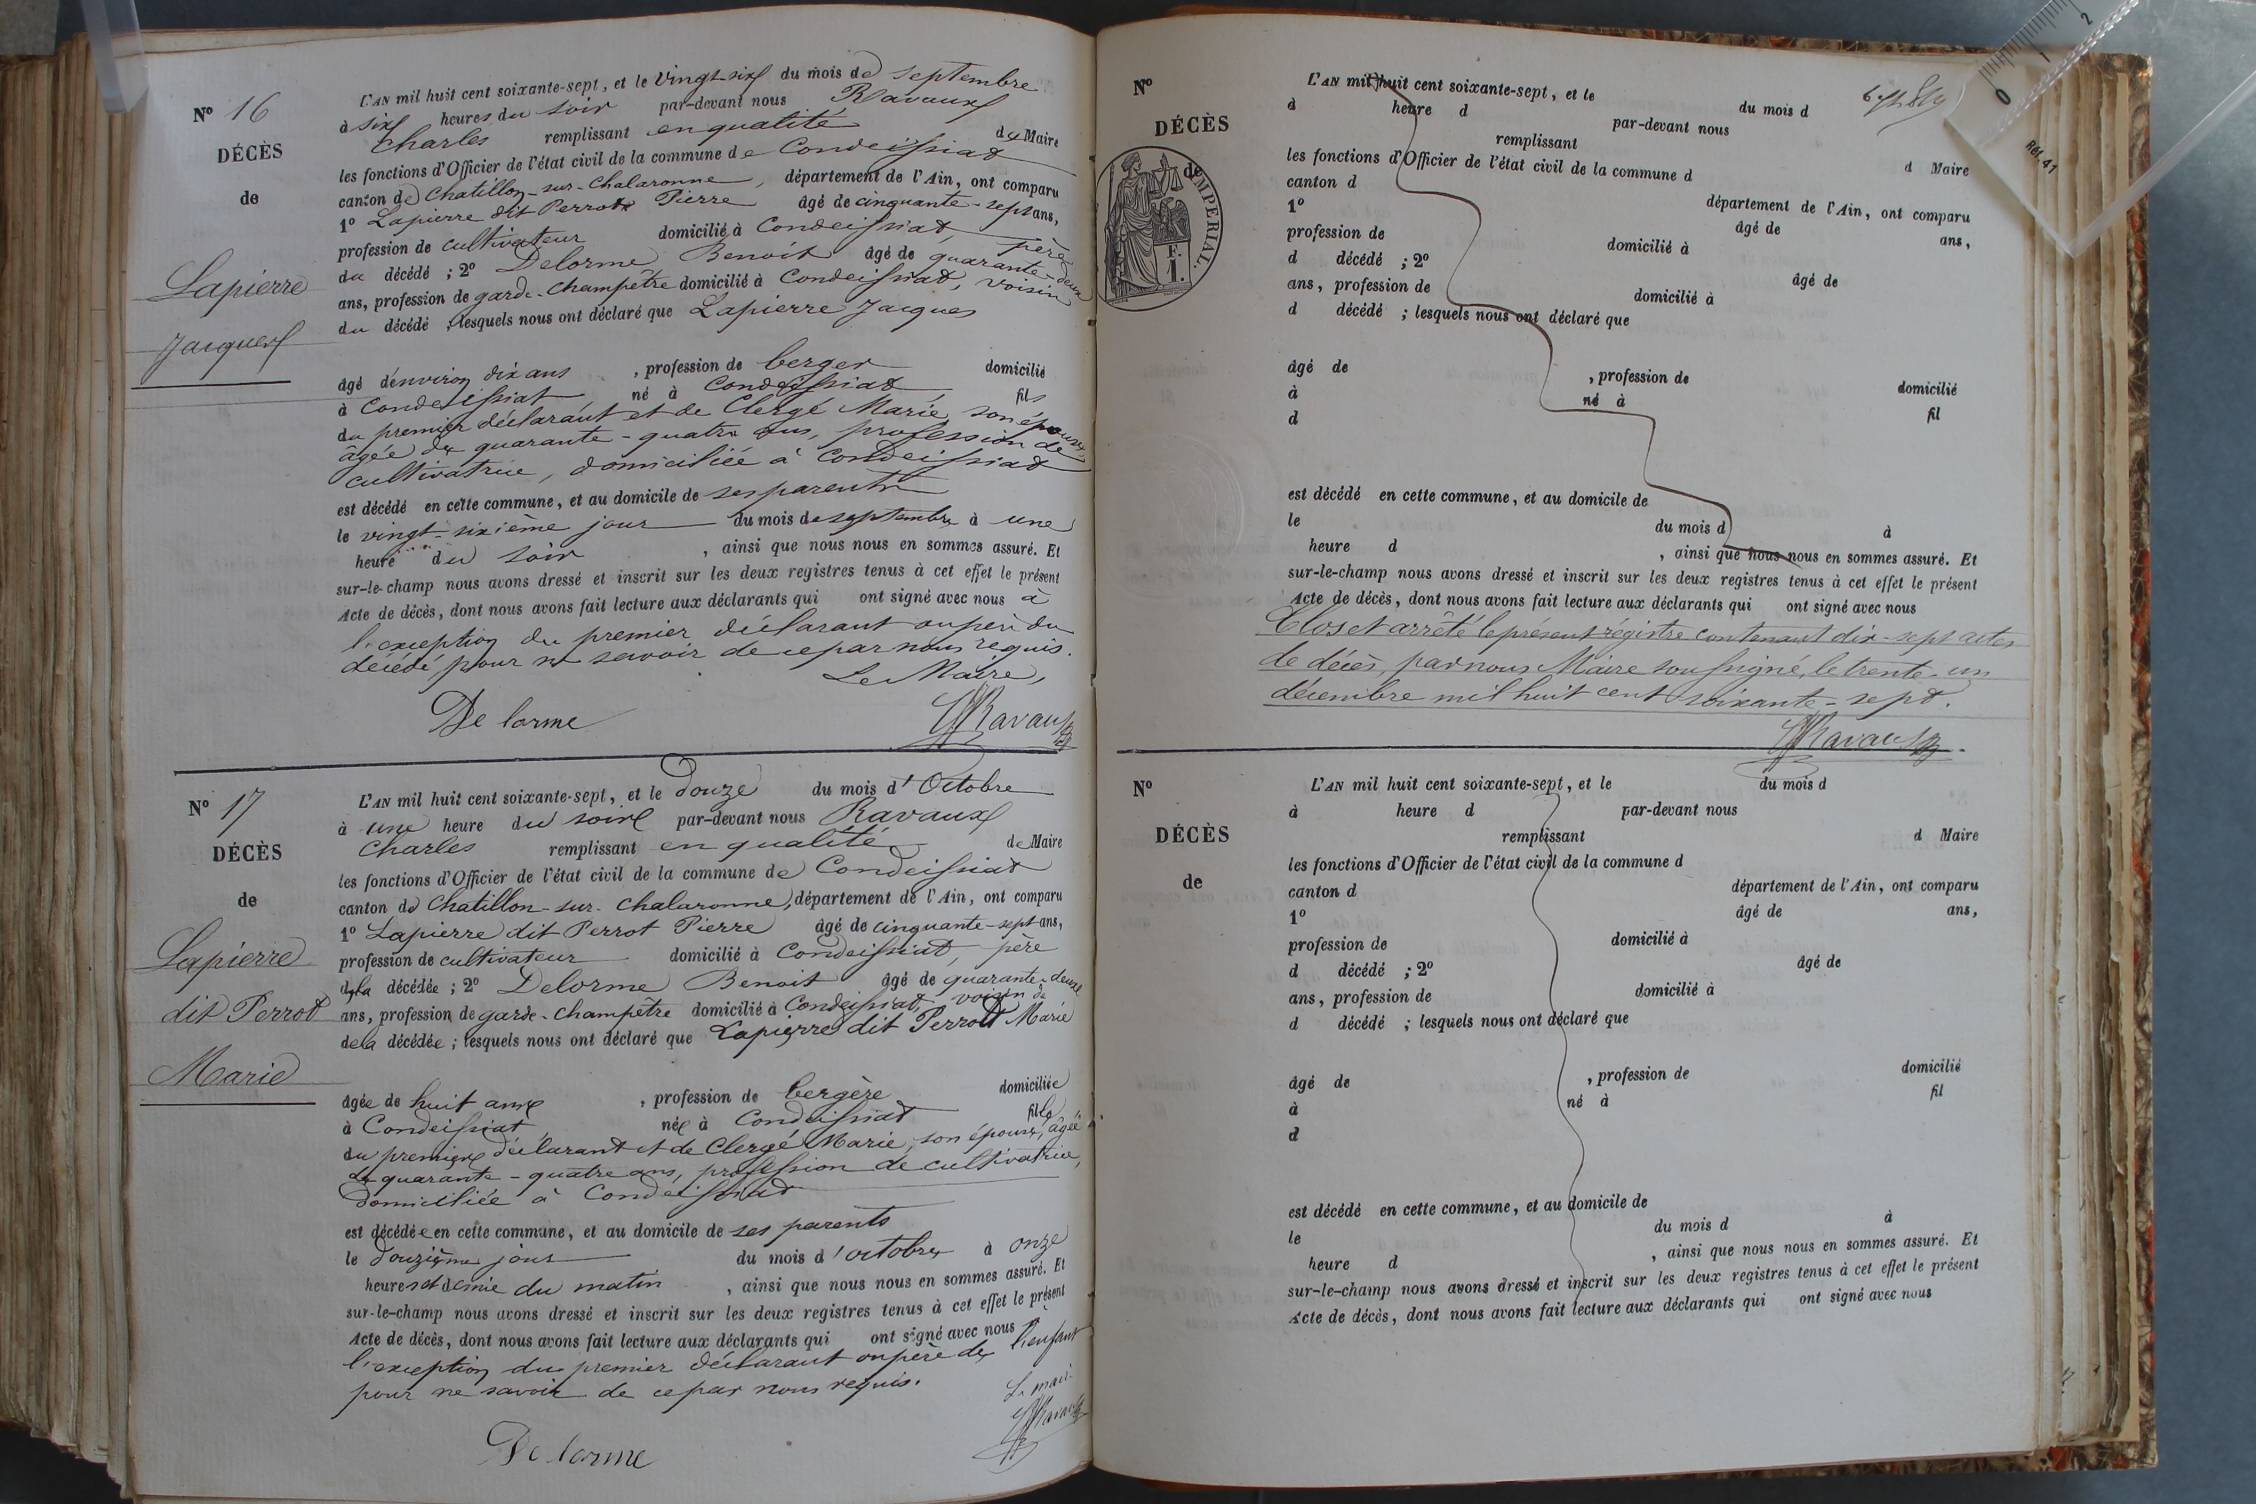 N° 16
DÉCÈS
de
Lapierre
Jacques
L'AN mil huit cent soixante-sept, et le vingt-six du mois de septembre
à six heures du soir par-devant nous Ravaux
Charles remplissant en qualité de Maire
les fonctions d'Officier de l'état civil de la commune de Condeissiat
canton de Chatillon-sur-Chalaronne, département de l'Ain, ont comparu
1° Lapierre dit Perrot Pierre âgé de cinquante-sept ans,
profession de cultivateur domicilié à Condeissiat, père
du décédé ; 2° Delorme Benoit âgé de quarante-deux
ans, profession de garde-champêtre domicilié à Condeissiat, voisin
du décédé ; lesquels nous ont déclaré que Lapierre Jacques
âgé d'environ dix ans , profession de berger domicilié
à Condeissiat né à Condeissiat fils
du premier déclarant et de Clergé Marie, son épouse,
âgée de quarante-quatre ans, profession de
cultivatrice, domiciliée à Condeissiat
est décédé en cette commune, et au domicile de ses parents
le vingt-sixième jour du mois de septembre à une
heure du soir , ainsi que nous nous en sommes assuré. Et
sur-le-champ nous avons dressé et inscrit sur les deux registres tenus à cet effet le présent
Acte de décès, dont nous avons fait lecture aux déclarants qui ont signé avec nous à
l'exception du premier déclarant ou père du
décédé pour ne savoir de ce par nous requis.
Le Maire,
Delorme Ravaux
N° 17
DÉCÈS
de
Lapierre
dit Perrot
Marie
L'AN mil huit cent soixante-sept, et le douze du mois d'Octobre
à une heure du soir par-devant nous Ravaux
Charles remplissant en qualité de Maire
les fonctions d'Officier de l'état civil de la commune de Condeissiat
canton de Chatillon-sur-Chalaronne, département de l'Ain, ont comparu
1° Lapierre dit Perrot Pierre âgé de cinquante-sept ans,
profession de cultivateur domicilié à Condeissiat, père
de la décédée ; 2° Delorme Benoit âgé de quarante-deux
ans, profession de garde-champêtre domicilié à Condeissiat, voisin de
de la décédée ; lesquels nous ont déclaré que Lapierre dit Perrot Marie
âgée de huit ans , profession de bergère domiciliée
à Condeissiat née à Condeissiat fille
du premier déclarant et de Clergé Marie, son épouse, âgée
de quarante-quatre ans, profession de cultivatrice,
domiciliée à Condeissiat
est décédée en cette commune, et au domicile de ses parents
le douzième jour du mois d'octobre à onze
heures et demie du matin , ainsi que nous nous en sommes assuré. Et
sur-le-champ nous avons dressé et inscrit sur les deux registres tenus à cet effet le présent
Acte de décès, dont nous avons fait lecture aux déclarants qui ont signé avec nous à
l'exception du premier déclarant ou père de l'enfant
pour ne savoir de ce par nous requis.
Le maire
Ravaux
Delorme
N°
DÉCÈS
de
IMPÉRIAL.
L'AN mil huit cent soixante-sept, et le du mois d
à heure d par-devant nous
remplissant d Maire
les fonctions d'Officier de l'état civil de la commune d
canton d département de l'Ain, ont comparu
1° âgé de ans,
profession de domicilié à
d décédé ; 2° âgé de
ans, profession de domicilié à
d décédé ; lesquels nous ont déclaré que
âgé de , profession de domicilié
à né à fil
d
est décédé en cette commune, et au domicile de
le du mois d à
heure d , ainsi que nous nous en sommes assuré. Et
sur-le-champ nous avons dressé et inscrit sur les deux registres tenus à cet effet le présent
Acte de décès, dont nous avons fait lecture aux déclarants qui ont signé avec nous
Clos et arrêté le présent régistre contenant dix-sept actes
de décès, par nous Maire soussigné, le trente-un
décembre mil huit cent soixante-sept.
Ravaux
N°
DÉCÈS
de
L'AN mil huit cent soixante-sept, et le du mois d
à heure d par-devant nous
remplissant d Maire
les fonctions d'Officier de l'état civil de la commune d
canton d département de l'Ain, ont comparu
1° âgé de ans,
profession de domicilié à
d décédé ; 2° âgé de
ans, profession de domicilié à
d décédé ; lesquels nous ont déclaré que
âgé de , profession de domicilié
à né à fil
d
est décédé en cette commune, et au domicile de
le du mois d à
heure d , ainsi que nous nous en sommes assuré. Et
sur-le-champ nous avons dressé et inscrit sur les deux registres tenus à cet effet le présent
Acte de décès, dont nous avons fait lecture aux déclarants qui ont signé avec nous
0 2
Réf. 41